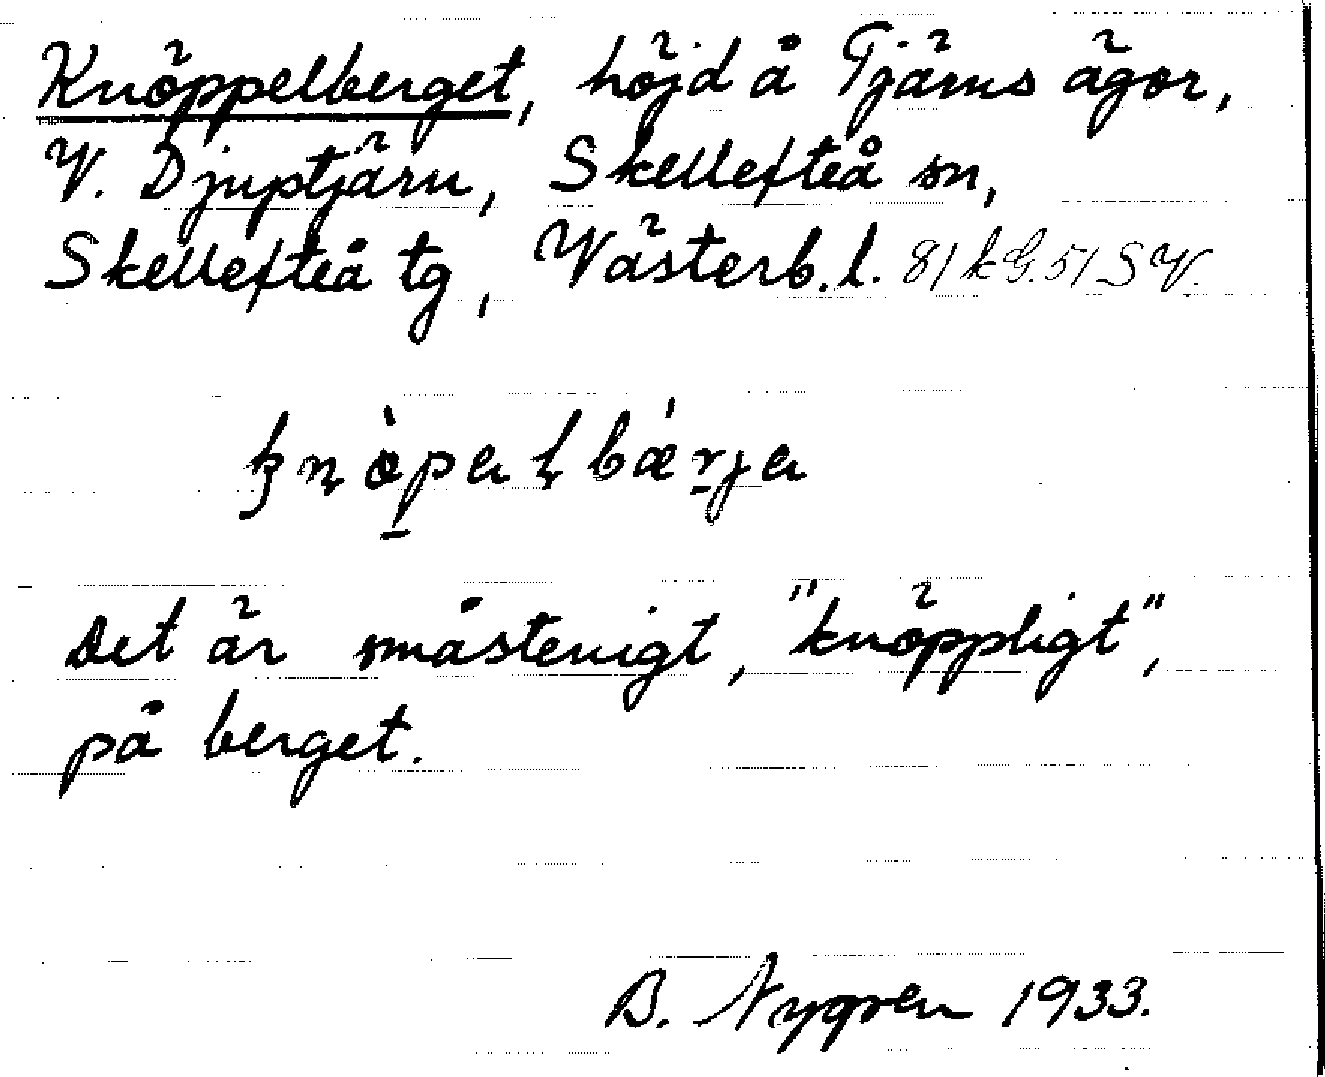 Knöppelberget, höjd å Tjärns ägor,
V. Djuptjärn, Skellefteå sn,
Skellefteå tg, Västerb. l. 81 kG. 51 SV.
knöpalbærja
Det är småstenigt, "knöppligt",
på berget.
B. Nygren 1933.